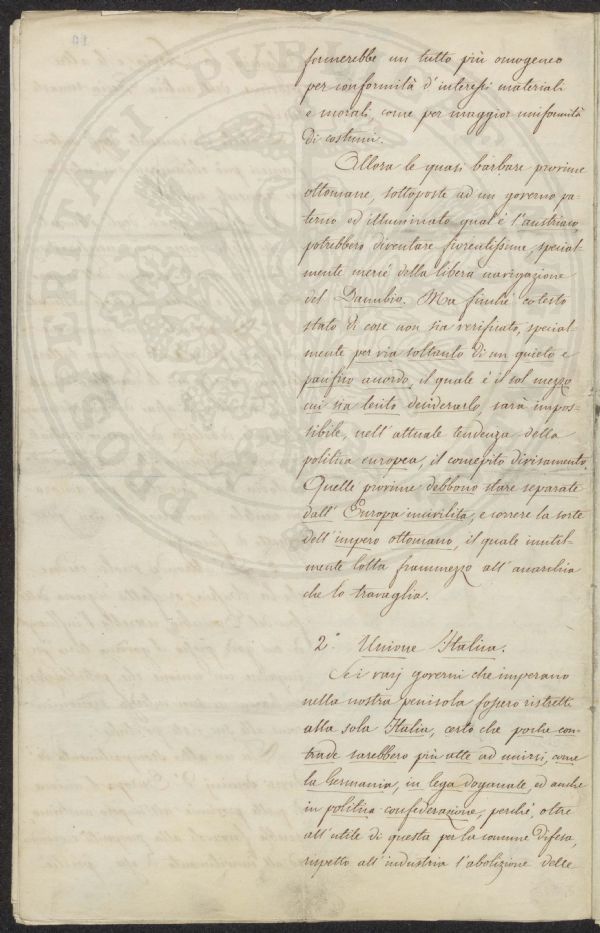 formerebbe un tutto più omogeneo
per conformità d'interessi materiali
e morali, come per maggior uniformità
di costumi.
Allora le quasi barbare provincie
ottomane, sottoposte ad un governo pa-
terno ed illuminato qual'è l'austriaco,
potrebbero diventare fiorentissime, special-
mente mercè della libera navigazione
del Danubio. Ma finchè cotesto
stato di cose non sia verificato, special-
mente per via soltanto di un quieto e
pacifico accordo, il quale è il sol mezzo
cui sia lecito desiderarlo, sarà impos-
sibile, nell'attuale tendenza della
politica europea, il concepito divisamento.
Quelle provincie debbono stare separate
dall'Europa incivilita, e correre la sorte
dell'impero ottomano, il quale inutil-
mente lotta frammezzo all'anarchia
che lo travaglia.
2.° Unione Italica.
Se i varj governi che imperano
nella nostra penisola fossero ristretti
alla sola Italia, certo che poche con-
trade sarebbero più atte ad unirsi, come
la Germania, in lega doganale, ed anche
in politica confederazione, perchè, oltre
all'utile di questa per la comune difesa,
rispetto all'industria l'abolizione delle